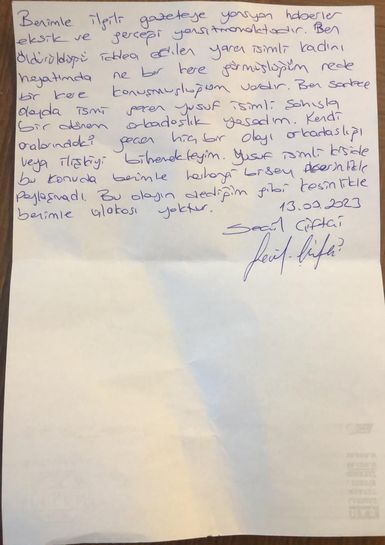 Benimle ilgili gazeteye yansıyan haberler
eksik ve gerçeği yansıtmamaktadır. Ben
öldürüldüğü iddea edilen yaren isimli kadını
hayatımda ne bir kere görmüşlüğüm nede
bir kere konuşmuşluğum vardır. Ben sadece
olayda ismi geçen yusuf isimli şahısla
bir dönem arkadaşlık yaşadım. Kendi
aralarındaki geçen hiç bir olayı arkadaşlığı
veya ilişkiyi bilmemekteyim. Yusuf isimli kişide
bu konuda benimle herhangi bişey
paylaşmadı. Bu olayın dediğim gibi kesinlikle
benimle alakası yoktur.
13.09.2023
Seçil Çiftçi
Seçil Çiftçi